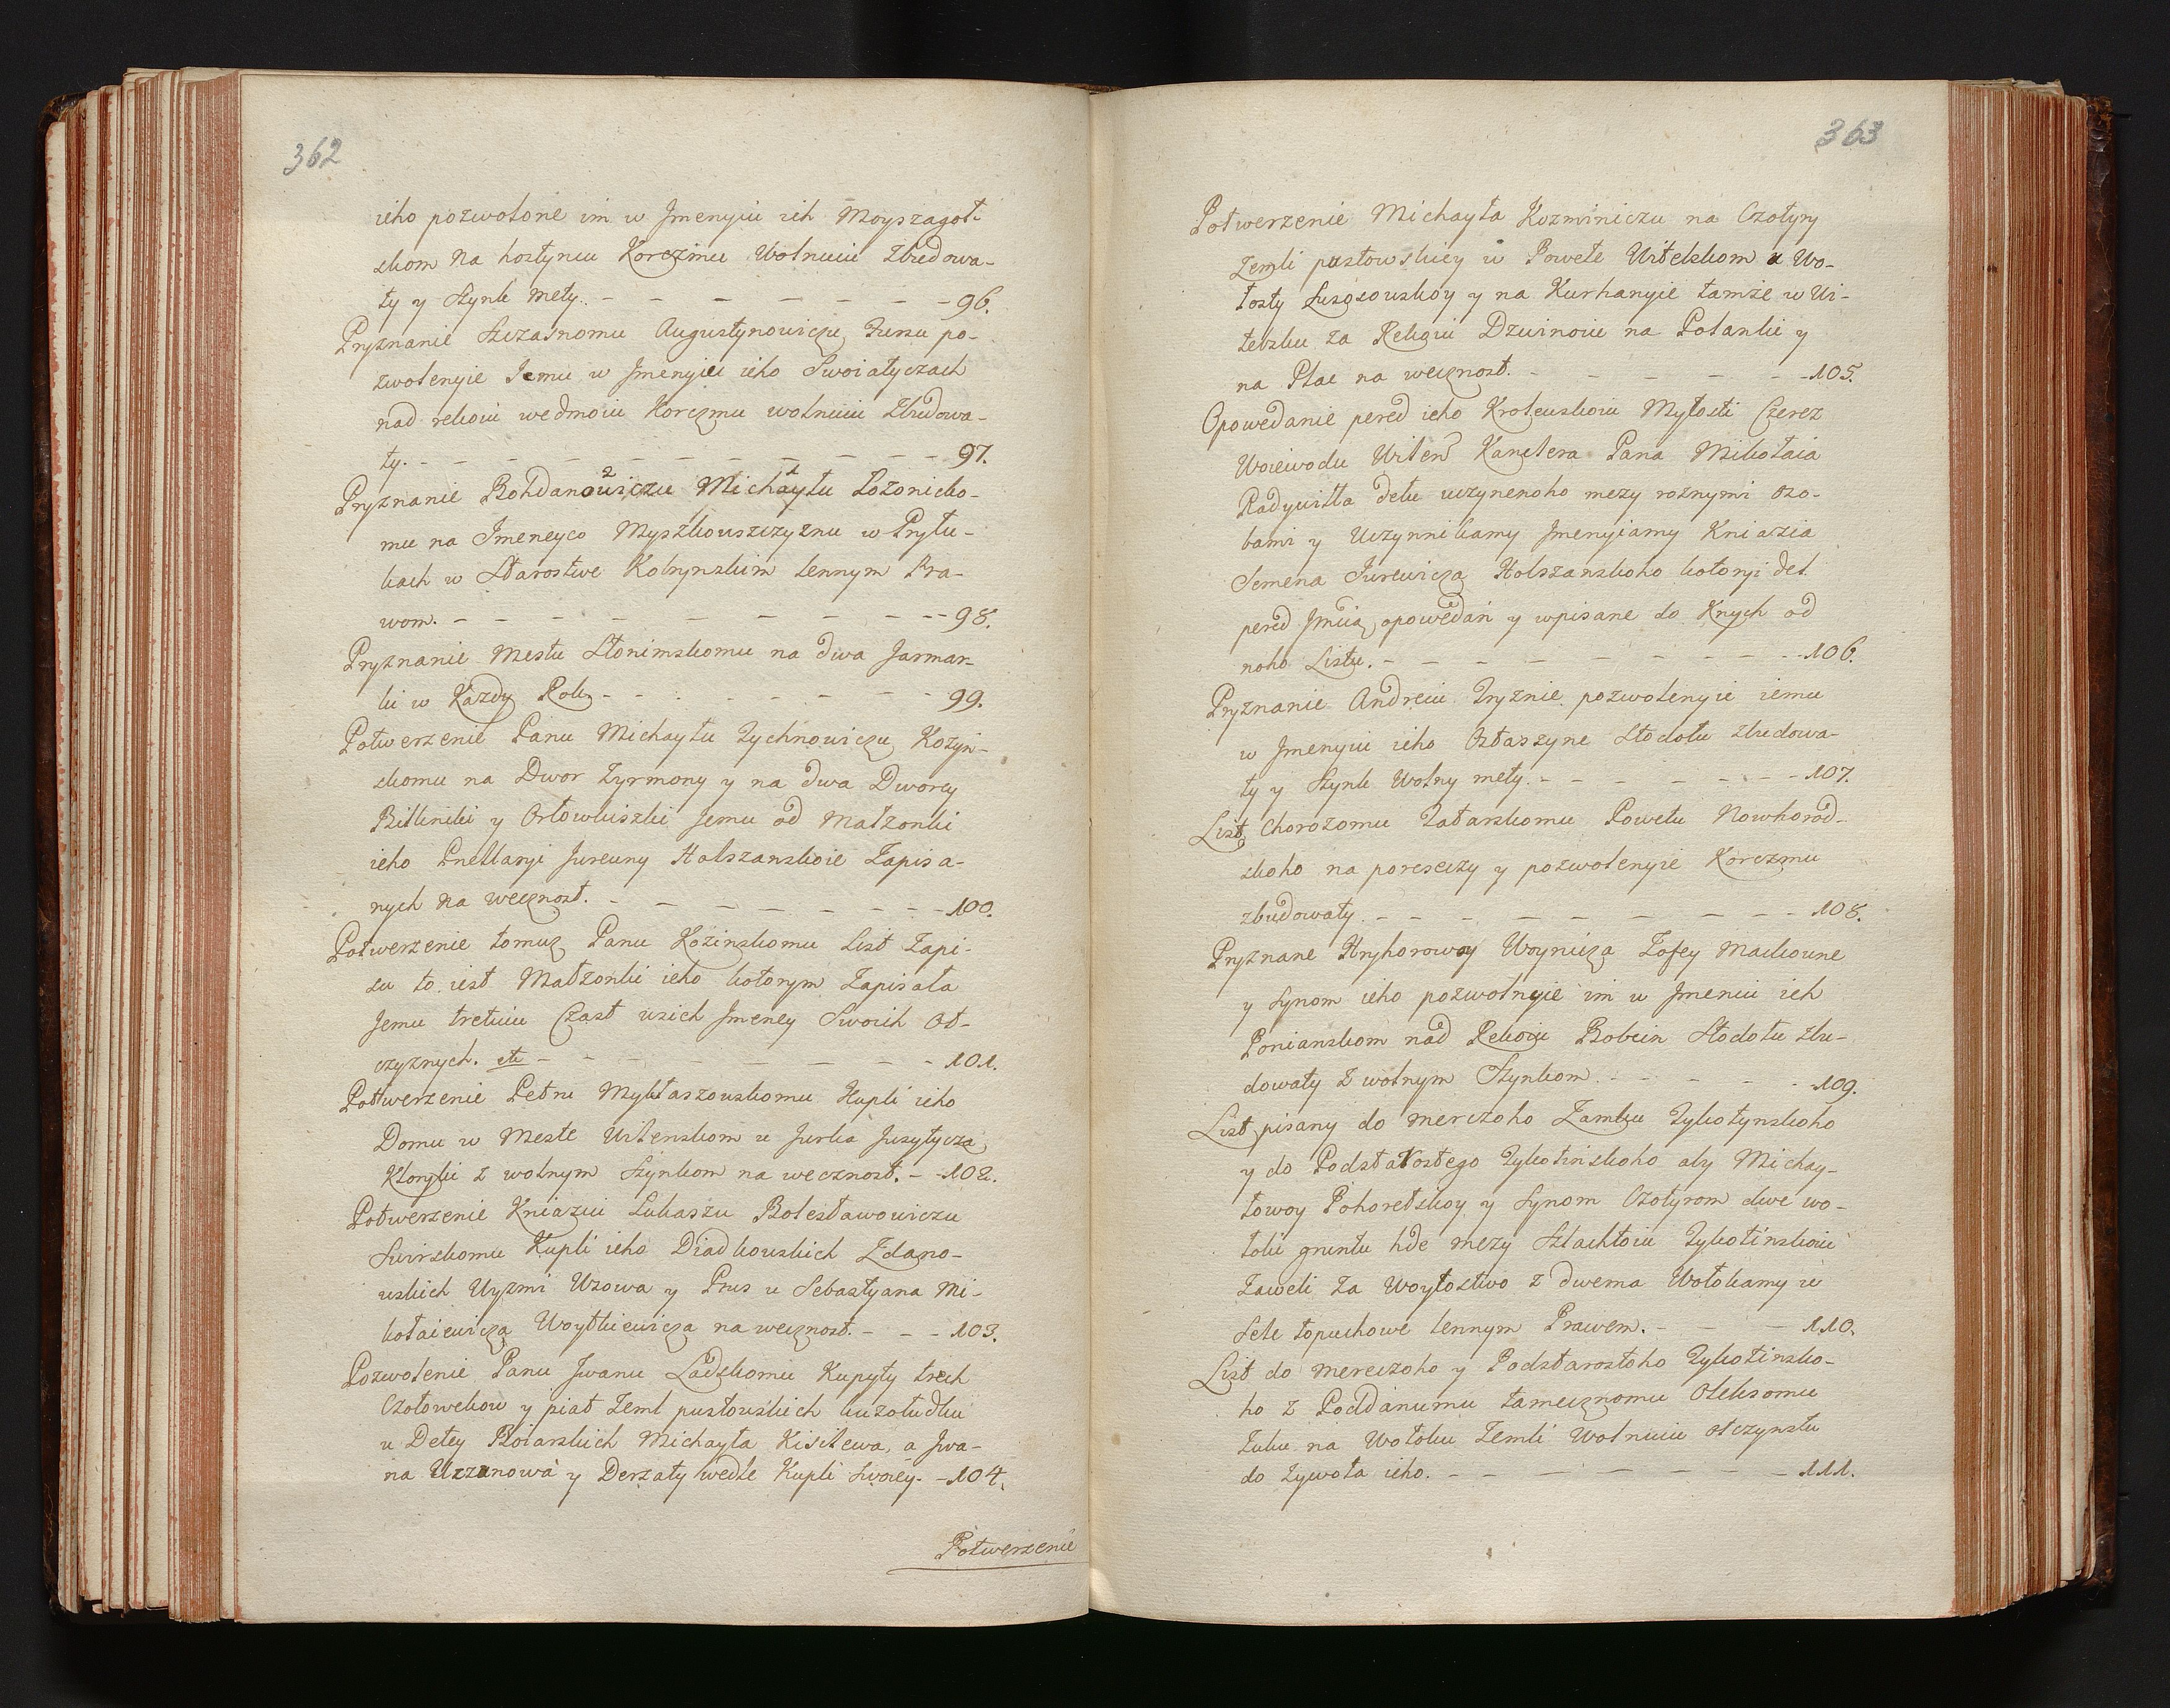 362
ieho pozwolone im w Jmenyiu ich Moyszagol-
skom na hostyncu Korczmu Wolnuiu Zbudowa-
ty y Szynk mety. - - - - - - - 96.
Pryznanie Szczasnomu Augustynowiczu Jursu po-
zwolenyie Jemu w Jmenyiu ieho Swoiatyczach
nad rekoiu wedmoiu Korczmu wolnuiu Zbudowa-
ty. - - - - - - - - - - 97.
Pryznanie Bohdanowiczu 2 Michaytu 1 Lozonicko-
mu na Jmeneyco Myszkouszczyznu w Prytu-
kach w Starostwe Kobrynskim lennym Pra-
wom. - - - - - - - - - 98.
Pryznanie Mestu Słonimskomu na dwa Jarmar-
ki w Kazdy Rok - - - - - - - - 99.
Potwerzenie Panu Michayłu Tychnowiczu Kozyn-
skomu na Dwor Zyrmony y na dwa Dworcy
Bitkiniki y Orłowkiszki Jemu od Małzonki
ieho Kneharyi Jureuny Holszanskoie Zapisa-
nych na wecznost. - - - - - - - - 100.
Potwerzenie tomuz Panu Kozinskomu List Zapi-
su to iest Małzonki ieho kotorym Zapisała
Jemu tretiuiu Czast usich Jmeney Swoich Ot-
czyznych. etc - - - - - - - - - 101.
Potwerzenie Petru Mykłaszouskomu Kupli ieho
Domu w Meste Wilenskom u Jurka Juzytycza
Ktoryki z wolnym Szynkom na wecznost. - - 102.
Potwerzenie Kniaziu Lukaszu Bolesławowiczu
Swirskomu Kupli ieho Diadkouskich Zdano-
uskich Uyzmi Uzowa y Prus u Sebastyana Mi-
kołaiewicza Woytkiewicza na wecznost. - - - 103.
Pozwolenie Panu Jwanu Ladskomu Kupyty trech
Czołowekow y piat Zeml pustouskich kuzoludku
u Detey Boiarskich Michayła Kisilewa, a Jwa-
na Uzzanowa y Derzaty wedle Kupli Swoiey. - 104.
Potwerzenie
363
Potwerzenie Michayła Kozminiczu na Czotyry
Zemli pustowskiey u Powete Witebskom u Wo-
łosty Susosouskoy y na Kurhanyie tamże w Wi-
tebsku za Rekoiu Dzwinoiu na Połanki y
na Plac na wecznost. - - - - - - 105.
Opowedanie pered ieho Krolewskoiu Myłosti Czerez
Woiewodu Wilen Kanclera Pana Mikołaia
Radywiłła Delu uczynenoho mezy roznymi ozo-
bami y Uczynnikamy Jmenyiamy Kniazia
Semena Jurewicza Holszanskoho kotoryi del
pered Jmcią opowedan y wpisane do Knych od
noho Listu. - - - - - - - - - 106.
Pryznanie Andreiu Tryznie pozwolenyie iemu
w Jmenyiu ieho Ostaszyne Stodołu zbudowa-
ty y Szynk Wolny mety. - - - - - - - 107.
List Chorozomu Tatarskomu Powetu Nowhorod-
skoho na porescczy y pozwolenyie Korczmu
zbudowaty. - - - - - - - - - 108.
Pryznane Hryhorowoy Woynicza Zofey Mackowne
y Synom ieho pozwolnyie im u Jmeniu ich
Ponianskom nad Rekoiu Bobcin Stodołu zbu-
dowaty z wolnym Szynkom. - - - - - 109.
List pisany do merczoho Zamku Tykotynskoho
y do Podstarostego Tykotinskoho aby Michay-
łowoy Pohoretskoy y Synom Czotyrom dwe wo-
łoki gruntu hde mezy Szlachtoiu Tykotinskoiu
Zaweli za Woytostwo z dwema Wołokamy u
Sele łopuchowe lennym Prawem. - - - 110.
List do merczoho y Podstarostoho Tykotinsko-
ho z Poddanumu tamecznomu Oleksomu
Zuku na Wołoku Zemli Wolnuiu otczynstu
do zywota ieho. - - - - - - - - 111.